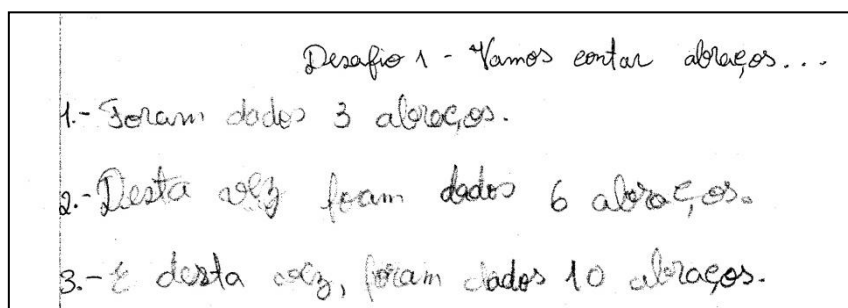 Desafio 1 - Vamos contar abraços...
1.- Foram dados 3 abraços.
2.- Desta vez foram dados 6 abraços.
3.- E desta vez, foram dados 10 abraços.